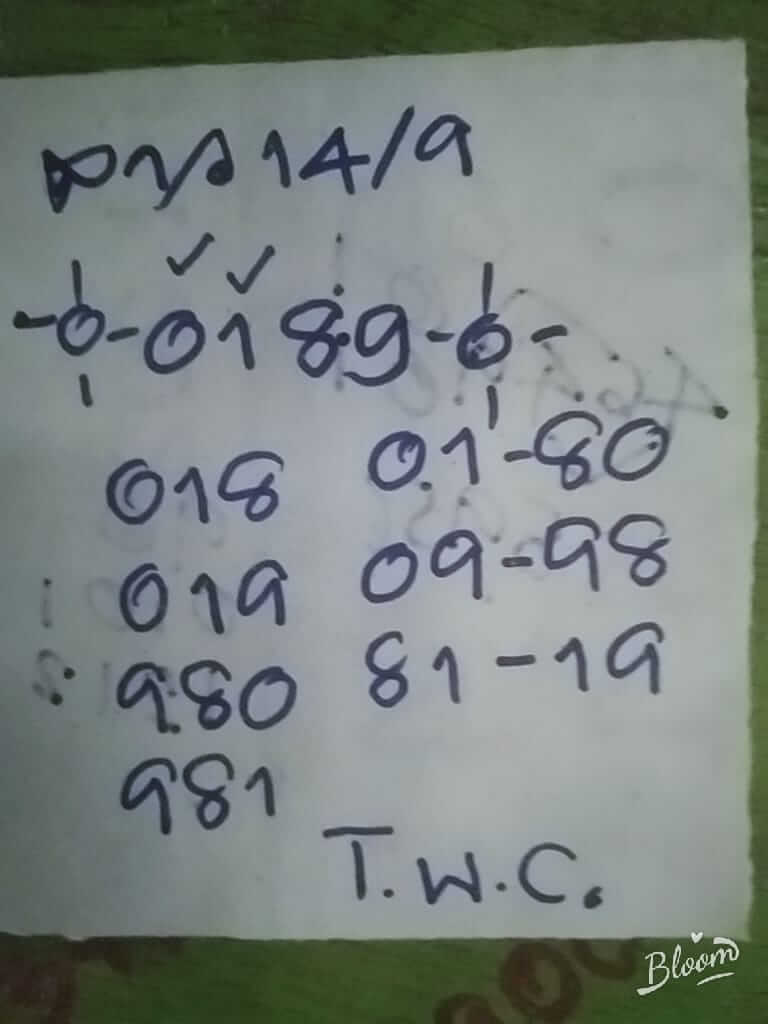 ลาว 14/9
-0-0189-0-
018 01-80
019 09-98
980 81-19
981
T.W.C.
Bloom